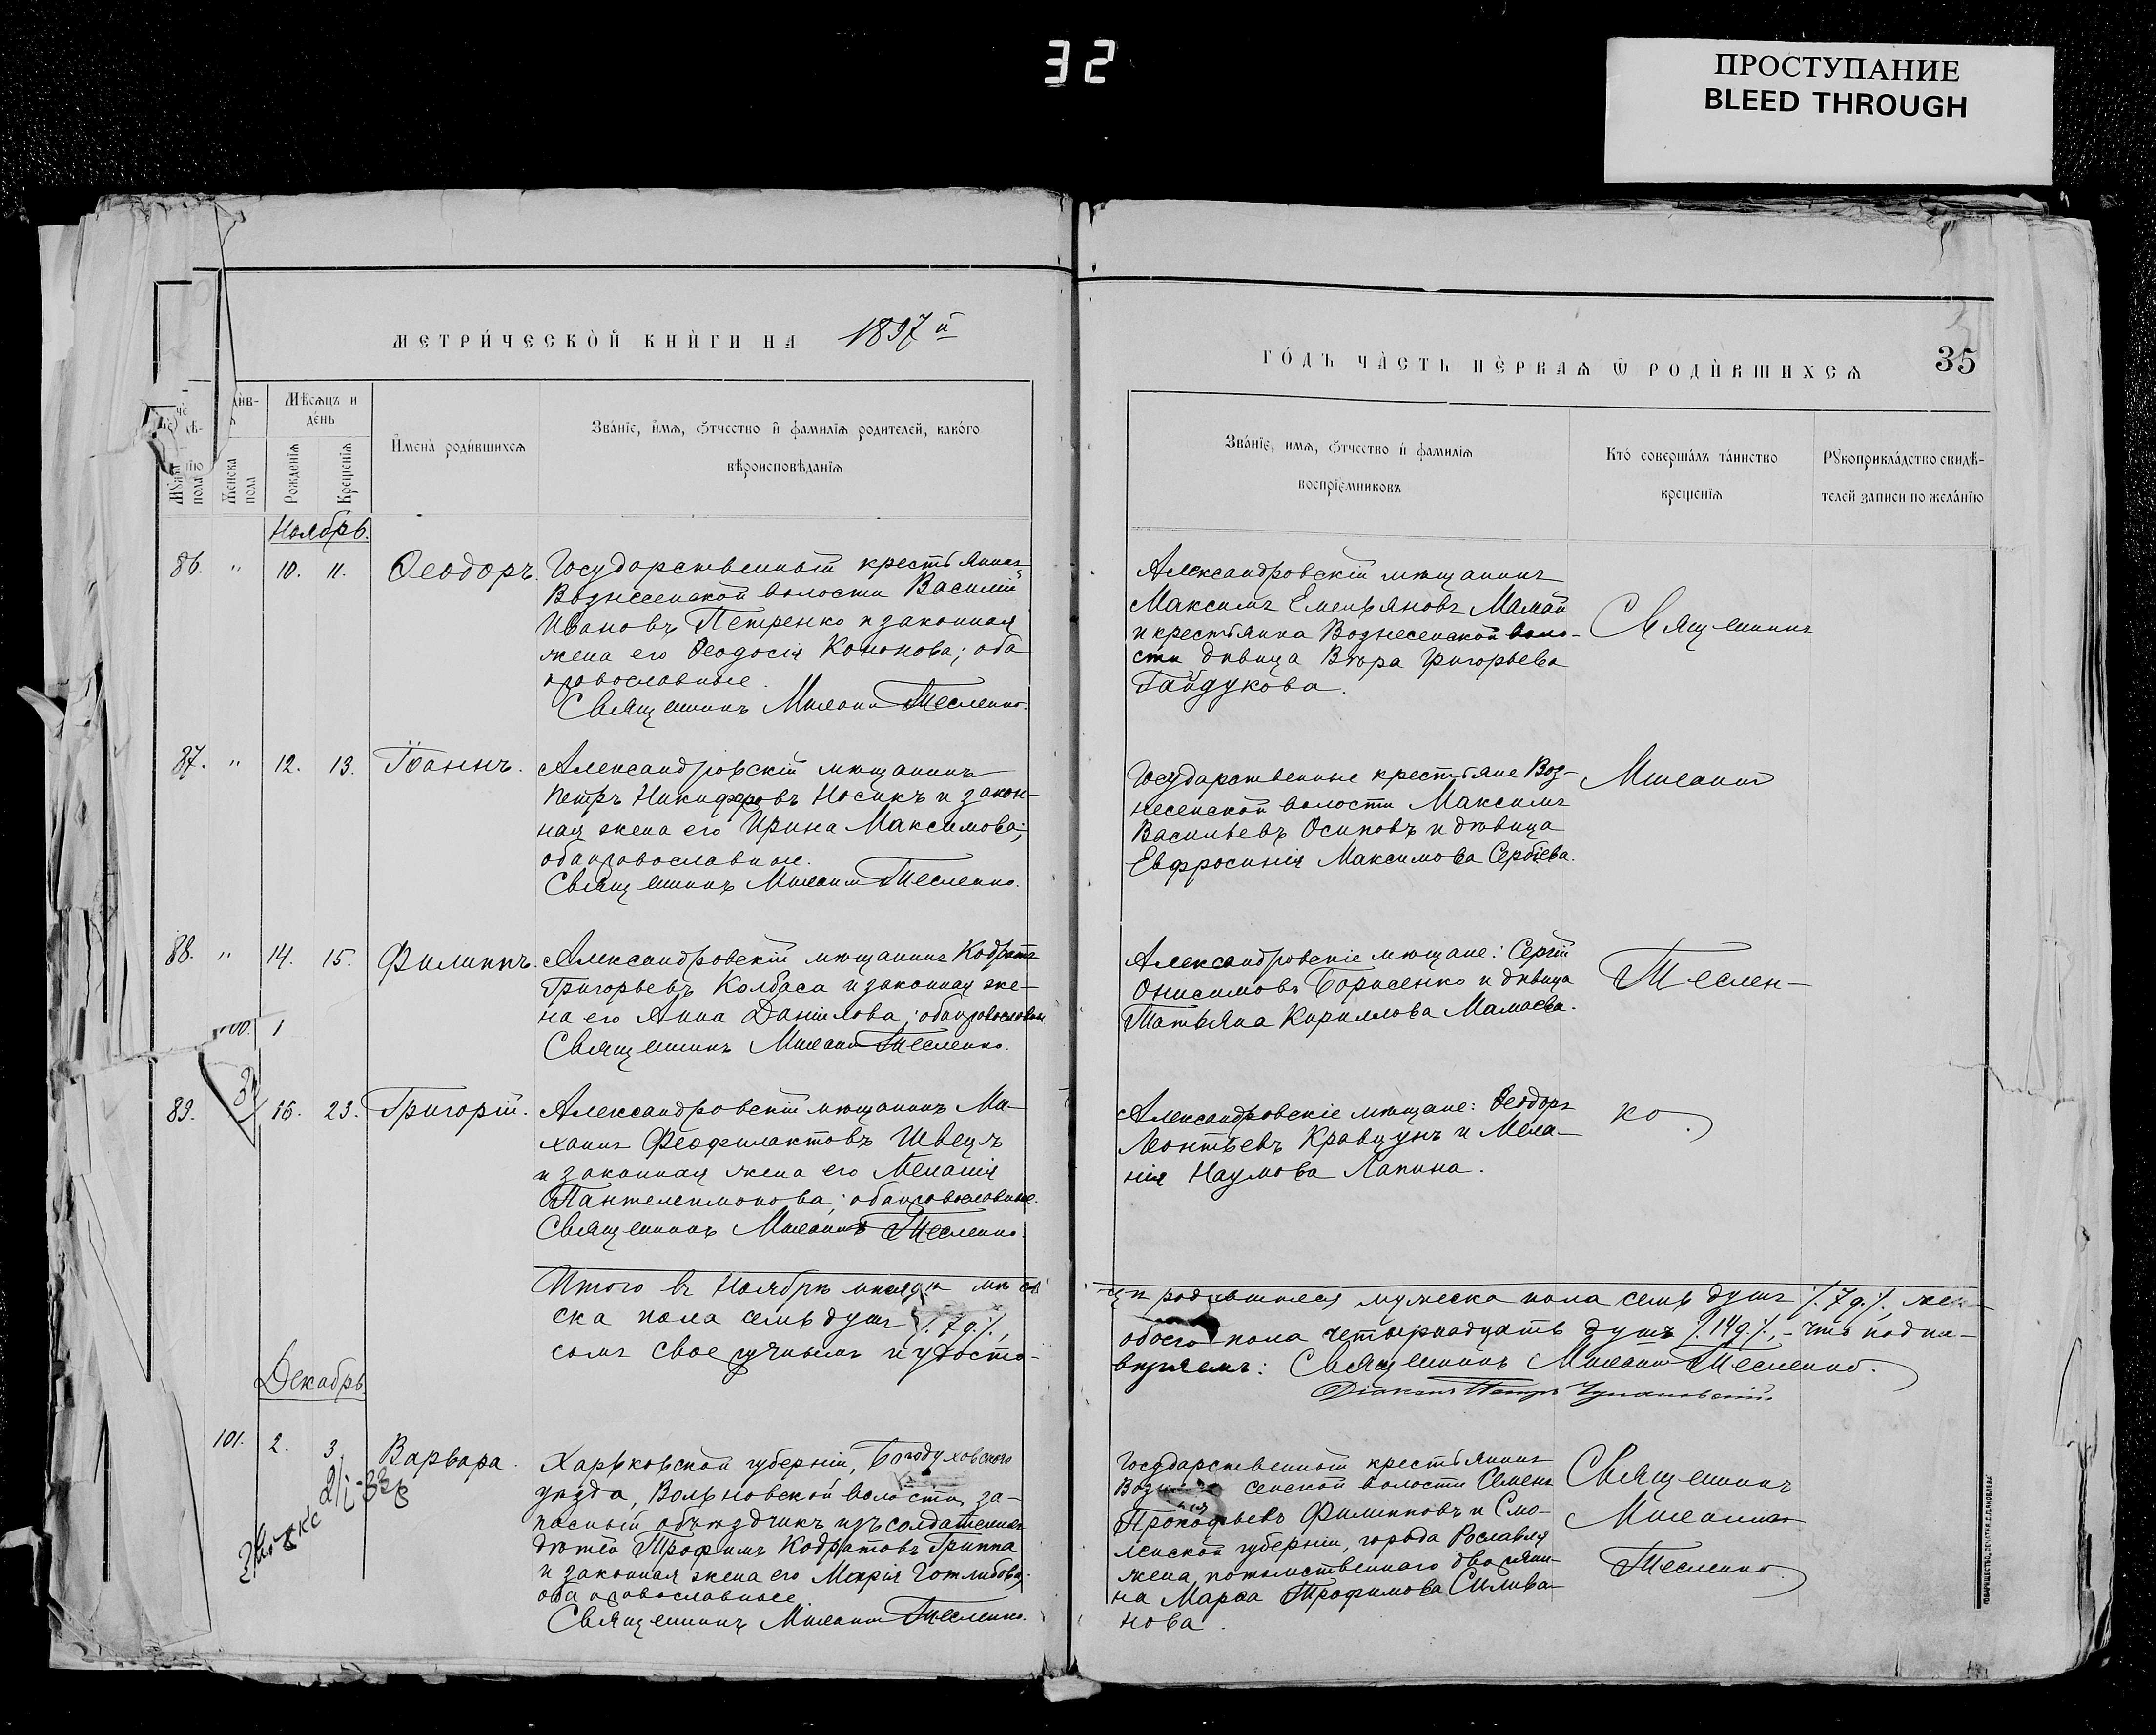 32
ПРОСТУПАНИЕ
BLEED THROUGH
МЕТРИ́ЧЕСКОЙ КНИ́ГИ НА 1897 й
ГО́ДЪ ЧА́СТЬ ПЕ́РВАѦ Ѿ РОДИ́ВШИХСѦ 35
Мѣсѧцъ и
де́нь
Мꙋжска пола
Женска пола
Рожденїѧ
Крещенїѧ
И́мена̀ роди́вшихсѧ
Зва́нїе, и́мѧ, ѻ҆тчество и҆ фамилїѧ родителей, како́го
вѣроисповѣданїѧ
Зва́нїе, имѧ, ѻ҆тчество и҆ фамилїѧ
воспрїемниковъ
Кто́ соверша́лъ та́инство
крещенїѧ
Рꙋкоприкла́дство свидѣ-
телей записи по жела́нїю
Ноябрь.
86. " 10. 11. Ѳеодоръ.
Государственный крестьянинъ
Вознесенской волости Василій
Ивановъ Петренко и законная
жена его Ѳеодосія Кононова; оба
православные.
Священникъ Тесленко.
Александровскій мѣщанинъ
Максимъ Емельяновъ Мамай
и крестьянка Вознесенской воло-
сти дѣвица Вѣра Григорьева
Гайдукова.
Священникъ
87. " 12. 13. Іоаннъ.
Александровскій мѣщанинъ
Петръ Никифоровъ Носикъ и закон-
ная жена его Ирина Максимова;
оба православные.
Священникъ Тесленко.
Государственные крестьяне Воз-
несенской волости Максимъ
Васильевъ Осиповъ и дѣвица
Евфросинія Максимова Сербіева.
88. " 14. 15. Филиппъ.
Александровскій мѣщанинъ Кодратъ
Григорьевъ Колбаса и законная же-
на его Анна Данилова; оба православн
Священникъ Тесленко.
Александровскіе мѣщане: Сергій
Онисимовъ Борисенко и дѣвица
Татьяна Кириллова Мамаева.
Теслен-
89. 16. 23. Григорій.
Александровскій мѣщанинъ Ми-
хаилъ Феофилактовъ Швецъ
и законная жена его Меланія
Пантелеимонова; оба православные.
Священникъ Тесленко.
Александровскіе мѣщане: Ѳеодоръ
Леонтьевъ Кравцунъ и Мела-
нія Наумова Лапина.
ко.
Итого въ Ноябрѣ мѣсяцѣ
ска пола семь душъ /. 7 д. /.,
цѣ родившихся мужеска пола семь душъ /. 7 д. /. жен-
обоего пола четырнадцать душъ /. 14 д. /., - что подпи-
сомъ свое учнымъ и удосто-
вѣряемъ: Священникъ Тесленко.
Діаконъ Петръ
Декабрь
101. 2. 3. Варвара.
Харьковской губерніи, Богодуховского
уѣзда, Вольновской волости, за-
пасный объѣздчикъ изъ солдатскихъ
дѣтей Трофимъ Кодратовъ Гриппа
и законная жена его Марія Готлибова;
оба православные.
Священникъ Тесленко.
Государственный крестьянинъ
Возне сенской волости Семенъ
Прокофьевъ Филипповъ и Смо-
ленской губерніи, города Рославля
жена потомственнаго дворяни-
на Марѳа Трофимова Силива-
нова.
Священникъ
Тесленко.